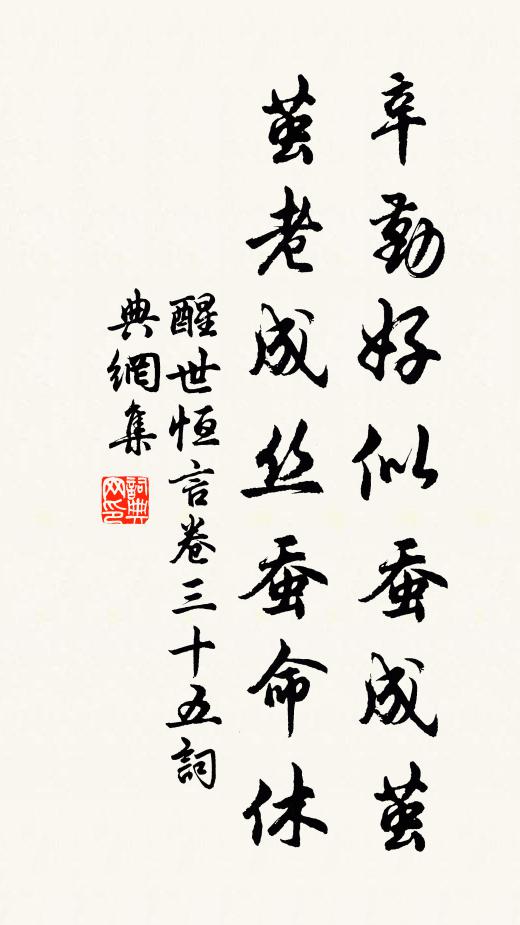 辛勤好似蚕成茧
茧老成丝蚕命休
醒世恒言卷三十五詞
典網集
詞典网印